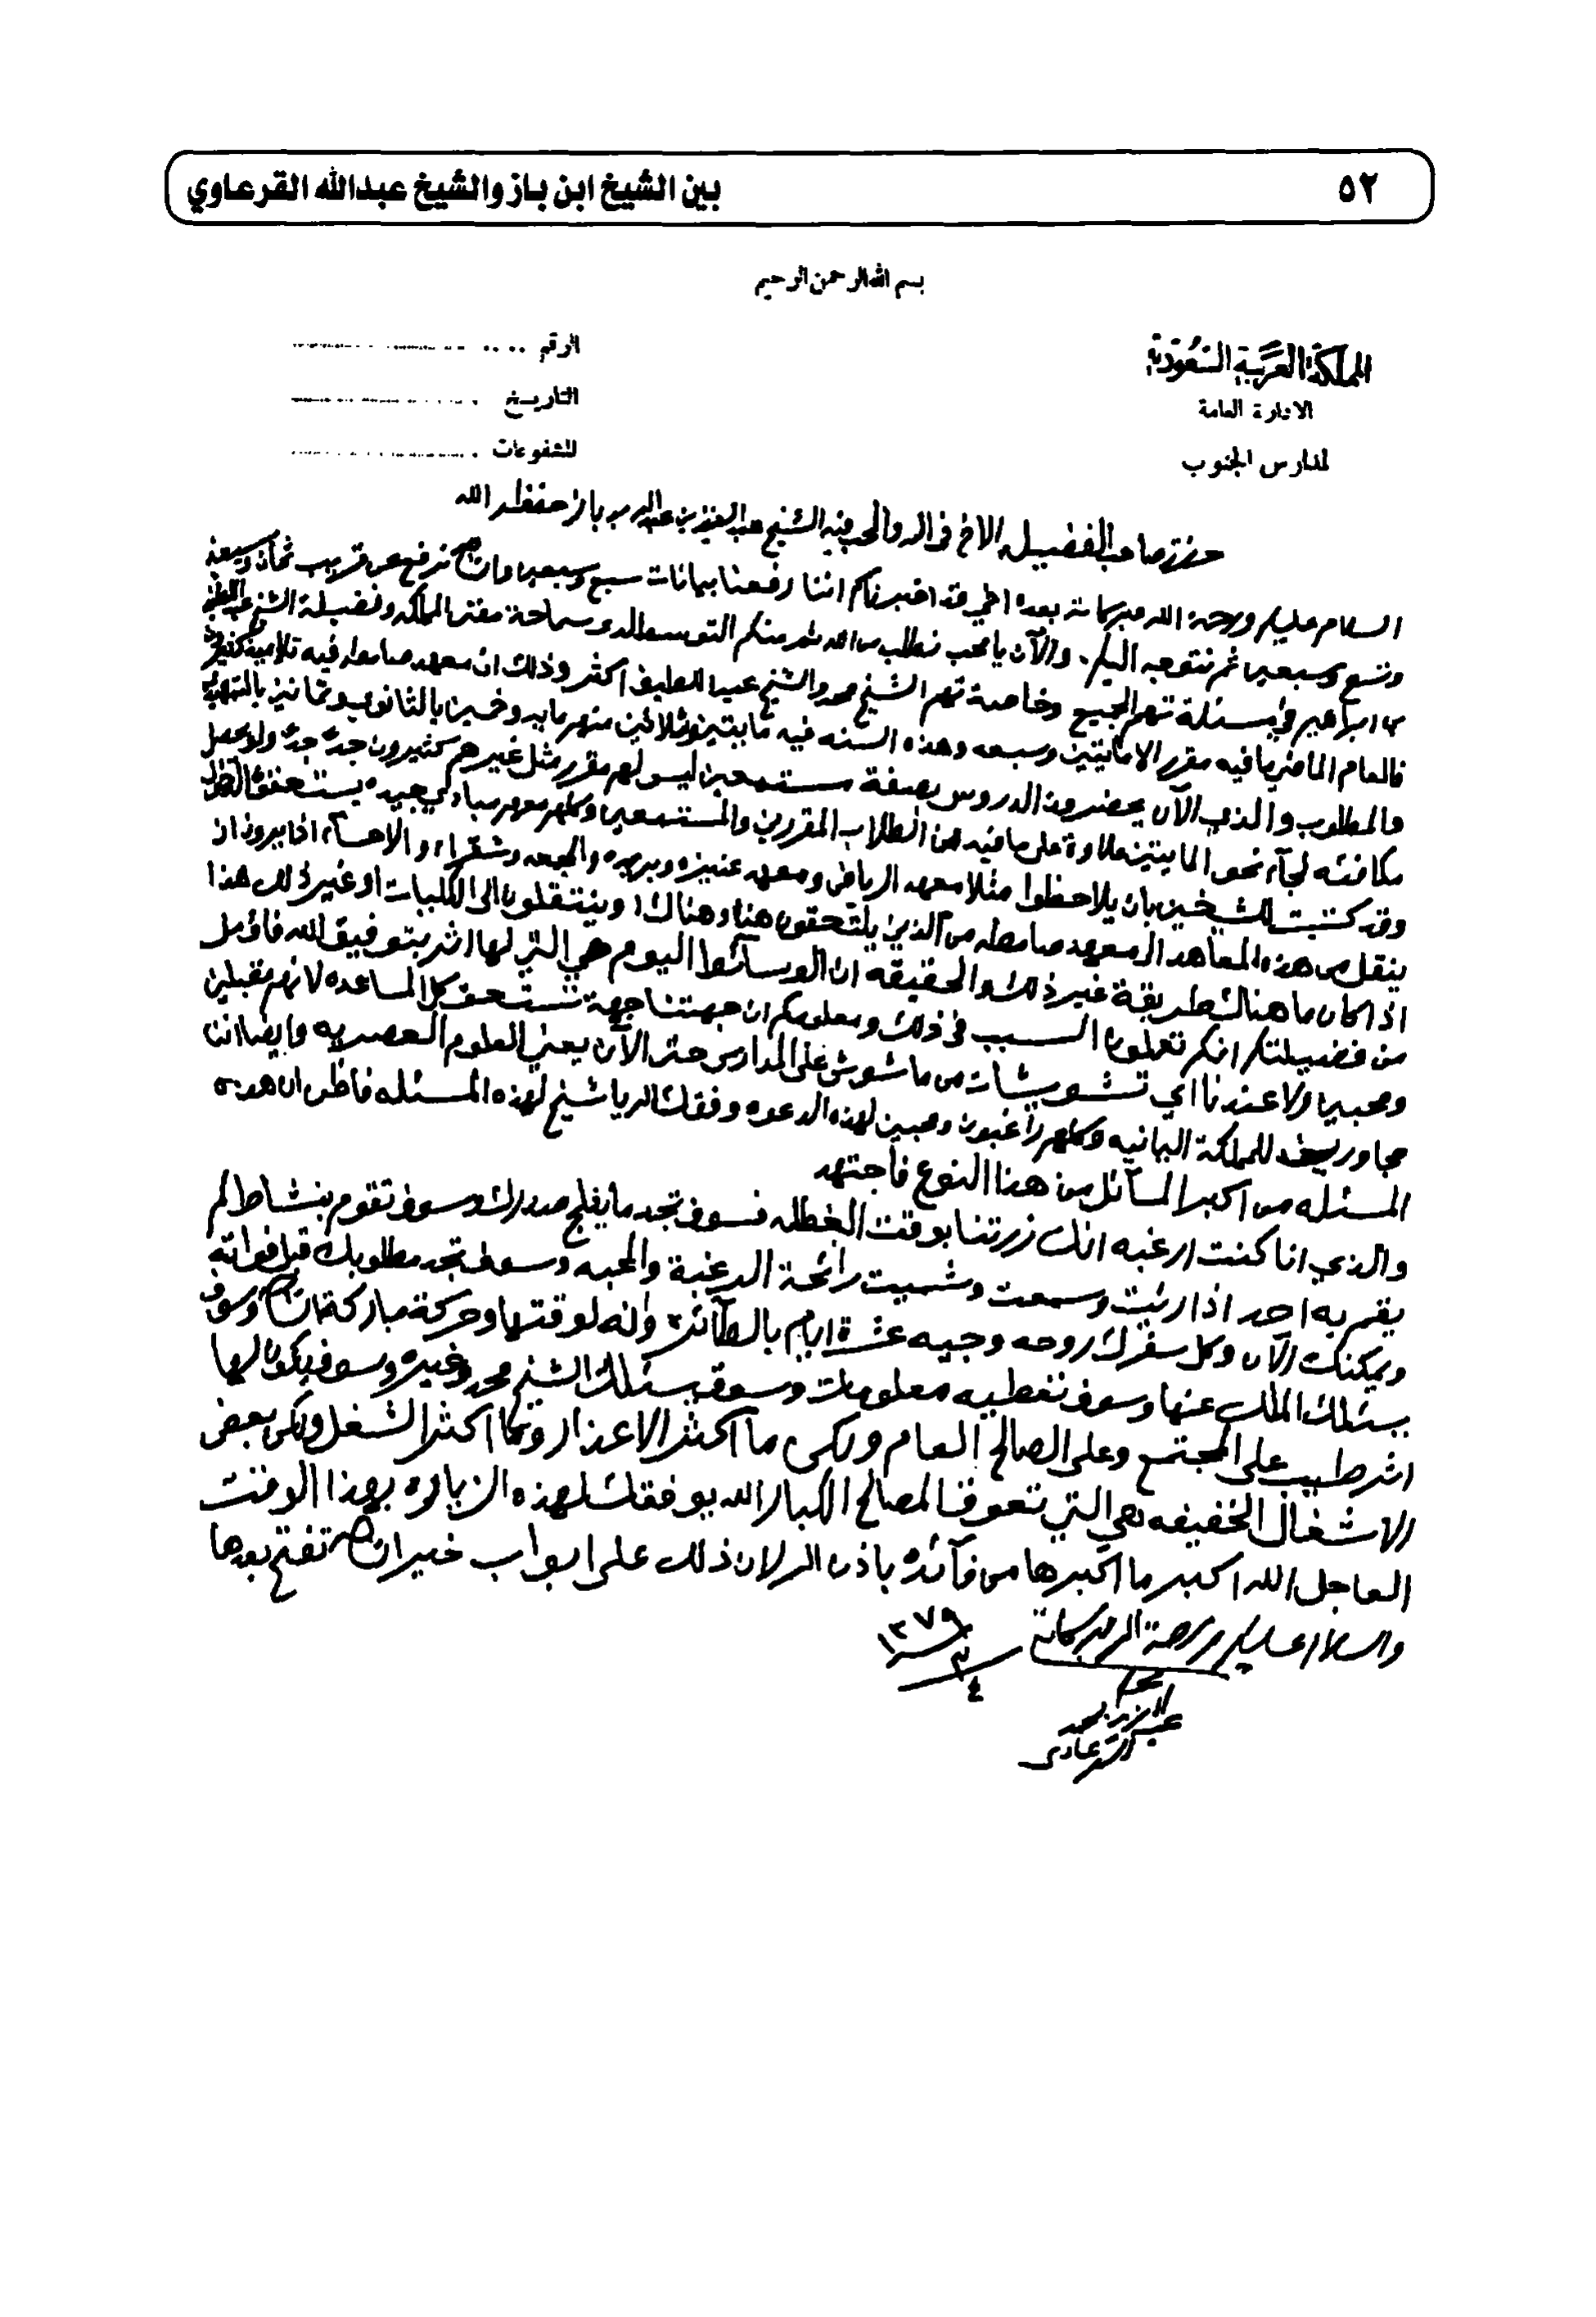 ٥٢
بين الشيخ ابن باز والشيخ عبدالله القرعاوي
بسم الله الرحمن الرحيم
المملكة العربية السعودية
الادارة العامة
لمدارس الجنوب
الرقم
التاريخ
المشفوعات
حضرة صاحب الفضيله الاخ فى الله والمحب فيه الشيخ عبدالعزيز بن عبدالله بن باز حفظه الله
السلام عليكم ورحمة الله وبركاته بعده اخي قد اخبرناكم اننا رفعنا بيانات سبع وسبعين وان نرفع عن قريب ثمان وسبعين
وتسع وسبعين ثم نتوجه اليكم. والآن يا محب نطلب من الله ثم منكم التوسط لدى سماحة مفتى المملكه وفضيلة الشيخ عبداللطيف
بن ابراهيم في مسئلة تهم الجميع وخاصة تهم الشيخ محمد والشيخ عبداللطيف اكثر وذلك ان معهد صامطه فيه تلاميذ كثيرون
فالعام الماضي ما فيه مقرر الا مائتين وسبعه وهذه السنه فيه مائتين وثلاثين منهم مايه وخمسين بالثانوي وثمانين بالتمهيدي
والمطلوب والذي الآن يحضرون الدروس بصفة مستمعين ليس لهم مقرر مثل غيرهم كثيرون جدا جدا ولو يحصل
مكافئه لجآء نحو المايتين علاوة على ما فيه من الطلاب المقررين والمستمعين وكلهم معهم مبادي جيده يستحقوا
وقد كتبت للشيخين بان يلاحظوا مثلا معهد الرياض ومعهد عنيزه وبريده والمجمعه وشقراء والاحسآء اذا يرون ان
ينقل من هذه المعاهد الى معهد صامطه من الذين يلتحقون هنا وهناك او ينتقلون الى الكليات او غير ذلك هذا
اذا كان ما هناك طريقة غير ذلك والحقيقه ان الوسائط اليوم هي التي لها اثر بتوفيق الله فاؤمل
من فضيلتكم انكم تعملون السبب فى ذلك ومعلومكم ان جهتنا جهة تستحق كل المساعده لانهم مقبلين
ومحبين ولا عندنا اي تشويشات من ما شوش على المدارس حتى الآن يعني العلوم العصريه وايضا اننا
مجاورين للمملكة اليمانيه وكلهم راغبون ومحبين لهذه الدعوه وفقك الله يا شيخ لهذه المسئله فاظن ان هذه
المسئله من اكبر المسآئل من هذا النوع فاجتهد
والذي انا كنت ارغبه انك زرتنا بوقت العطله فسوف تجد ما يثلج صدرك وسوف تقوم بنشاط لم
يقم به احد اذا رئيت وسمعت وشميت رائحة الرغبة والمحبه وسوف تجد مطلوبك قبل فواته
ويمكنك الآن وكل سفرك روحه وجيه عشرة ايام بالطآئره وانه لوقتها وحركة مباركة وسوف
يسئلك الملك عنها وسوف تعطيه معلومات وسوف يسئلك الشيخ محمد وغيره وسوف يكون لها
اثر طيب على المجتمع وعلى الصالح العام ولكن ما اكثر الاعذار وما اكثر الشغل ولكن بعض
الاشغال الخفيفه هي التي تعوق المصالح الكبار الله يوفقك لهذه الزياره بهذا الوقت
العاجل الله اكبر ما اكبرها من فآئده باذن الله لان ذلك على ابواب خيرات تفتح بعدها
والسلام عليكم ورحمة الله وبركاته
١٣٧٩/٣/٤
محبكم
عبدالله بن محمد
القرعاوي